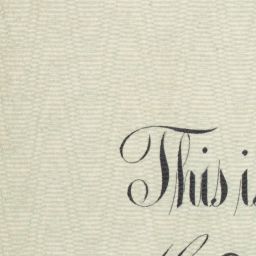 This i